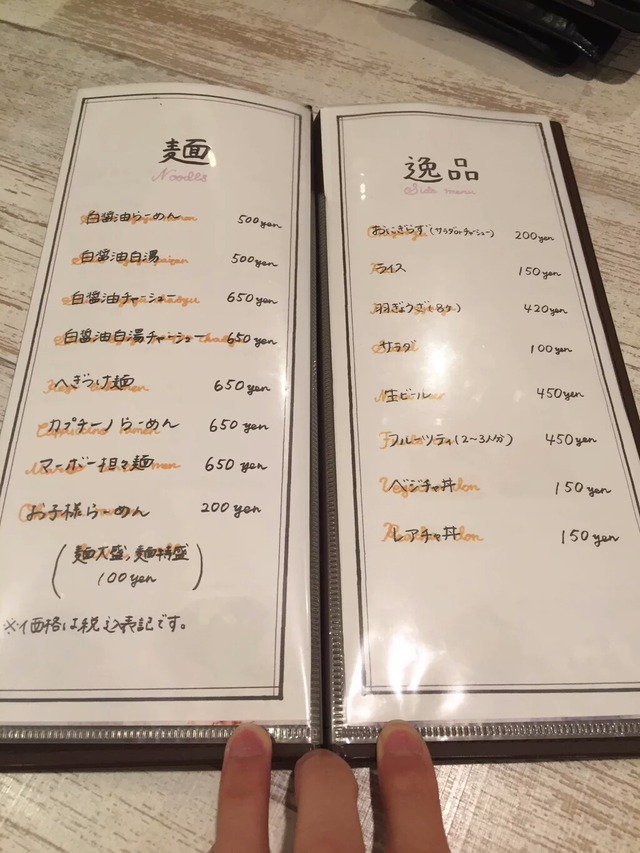 麺
Noodles
白醤油らーめん 500yen
白醤油白湯 500yen
白醤油チャーシュー 650yen
白醤油白湯チャーシュー 650yen
へぎつけ麺 650yen
カプチーノらーめん 650yen
マーボー担々麺 650yen
お子様らーめん 200yen
(麺大盛,麺特盛
100yen)
※価格は税込表記です。
逸品
Side menu
おにぎらず(サラダorチャーシュー) 200yen
ライス 150yen
羽ぎょうざ(8ヶ) 420yen
サラダ 100yen
生ビール 450yen
フルーツティ(2〜3人分) 450yen
ベジチャ丼 150yen
レアチャ丼 150yen